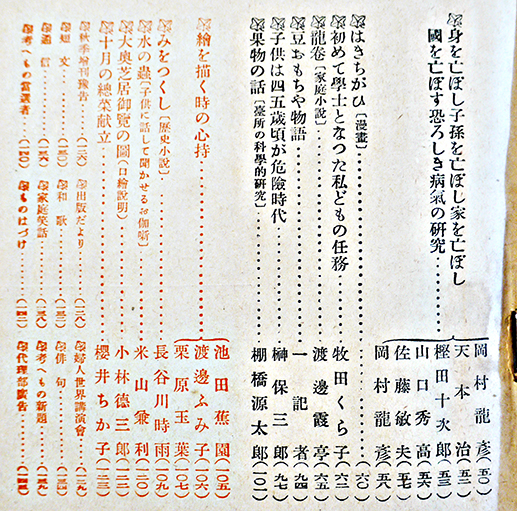 身を亡ぼし子孫を亡ぼし家を亡ぼし
國を亡ぼす恐ろしき病氣の研究
岡村龍彥(五〇)
天本治(五二)
樫田十次郎(五三)
山口秀高(五六)
佐藤敏夫(五七)
岡村龍彥(五八)
はきちがひ[漫畫](六〇)
初めて學士となつた私どもの任務 牧田くら子(六二)
龍卷[家庭小說] 渡邊霞亭(六五)
豆おもちや物語 一記者(九四)
子供は四五歲頃が危險時代 榊保三郎(九七)
果物の話[臺所の科學的硏究] 棚橋源太郎(一〇一)
繪を描く時の心持
池田蕉園(一〇五)
渡邊ふみ子(一〇六)
栗原玉葉(一〇七)
みをつくし[歷史小說] 長谷川時雨(一〇九)
水の蟲[子供に話して聞かせるお伽噺] 米山兼利(一二〇)
大奥芝居御覽の圖(口繪說明) 小林德三郎(一二二)
十月の總菜献立 櫻井ちか子(一二三)
秋季增刊豫告(一二六)
出版だより(一二八)
婦人世界講演會(一二九)
短文(一三〇)
和歌(一三二)
俳句(一三四)
通信(一三六)
家庭笑話(一三八)
考へもの新題(一三九)
考へもの當選者(一四〇)
ものはづけ(一四二)
代理部廣告